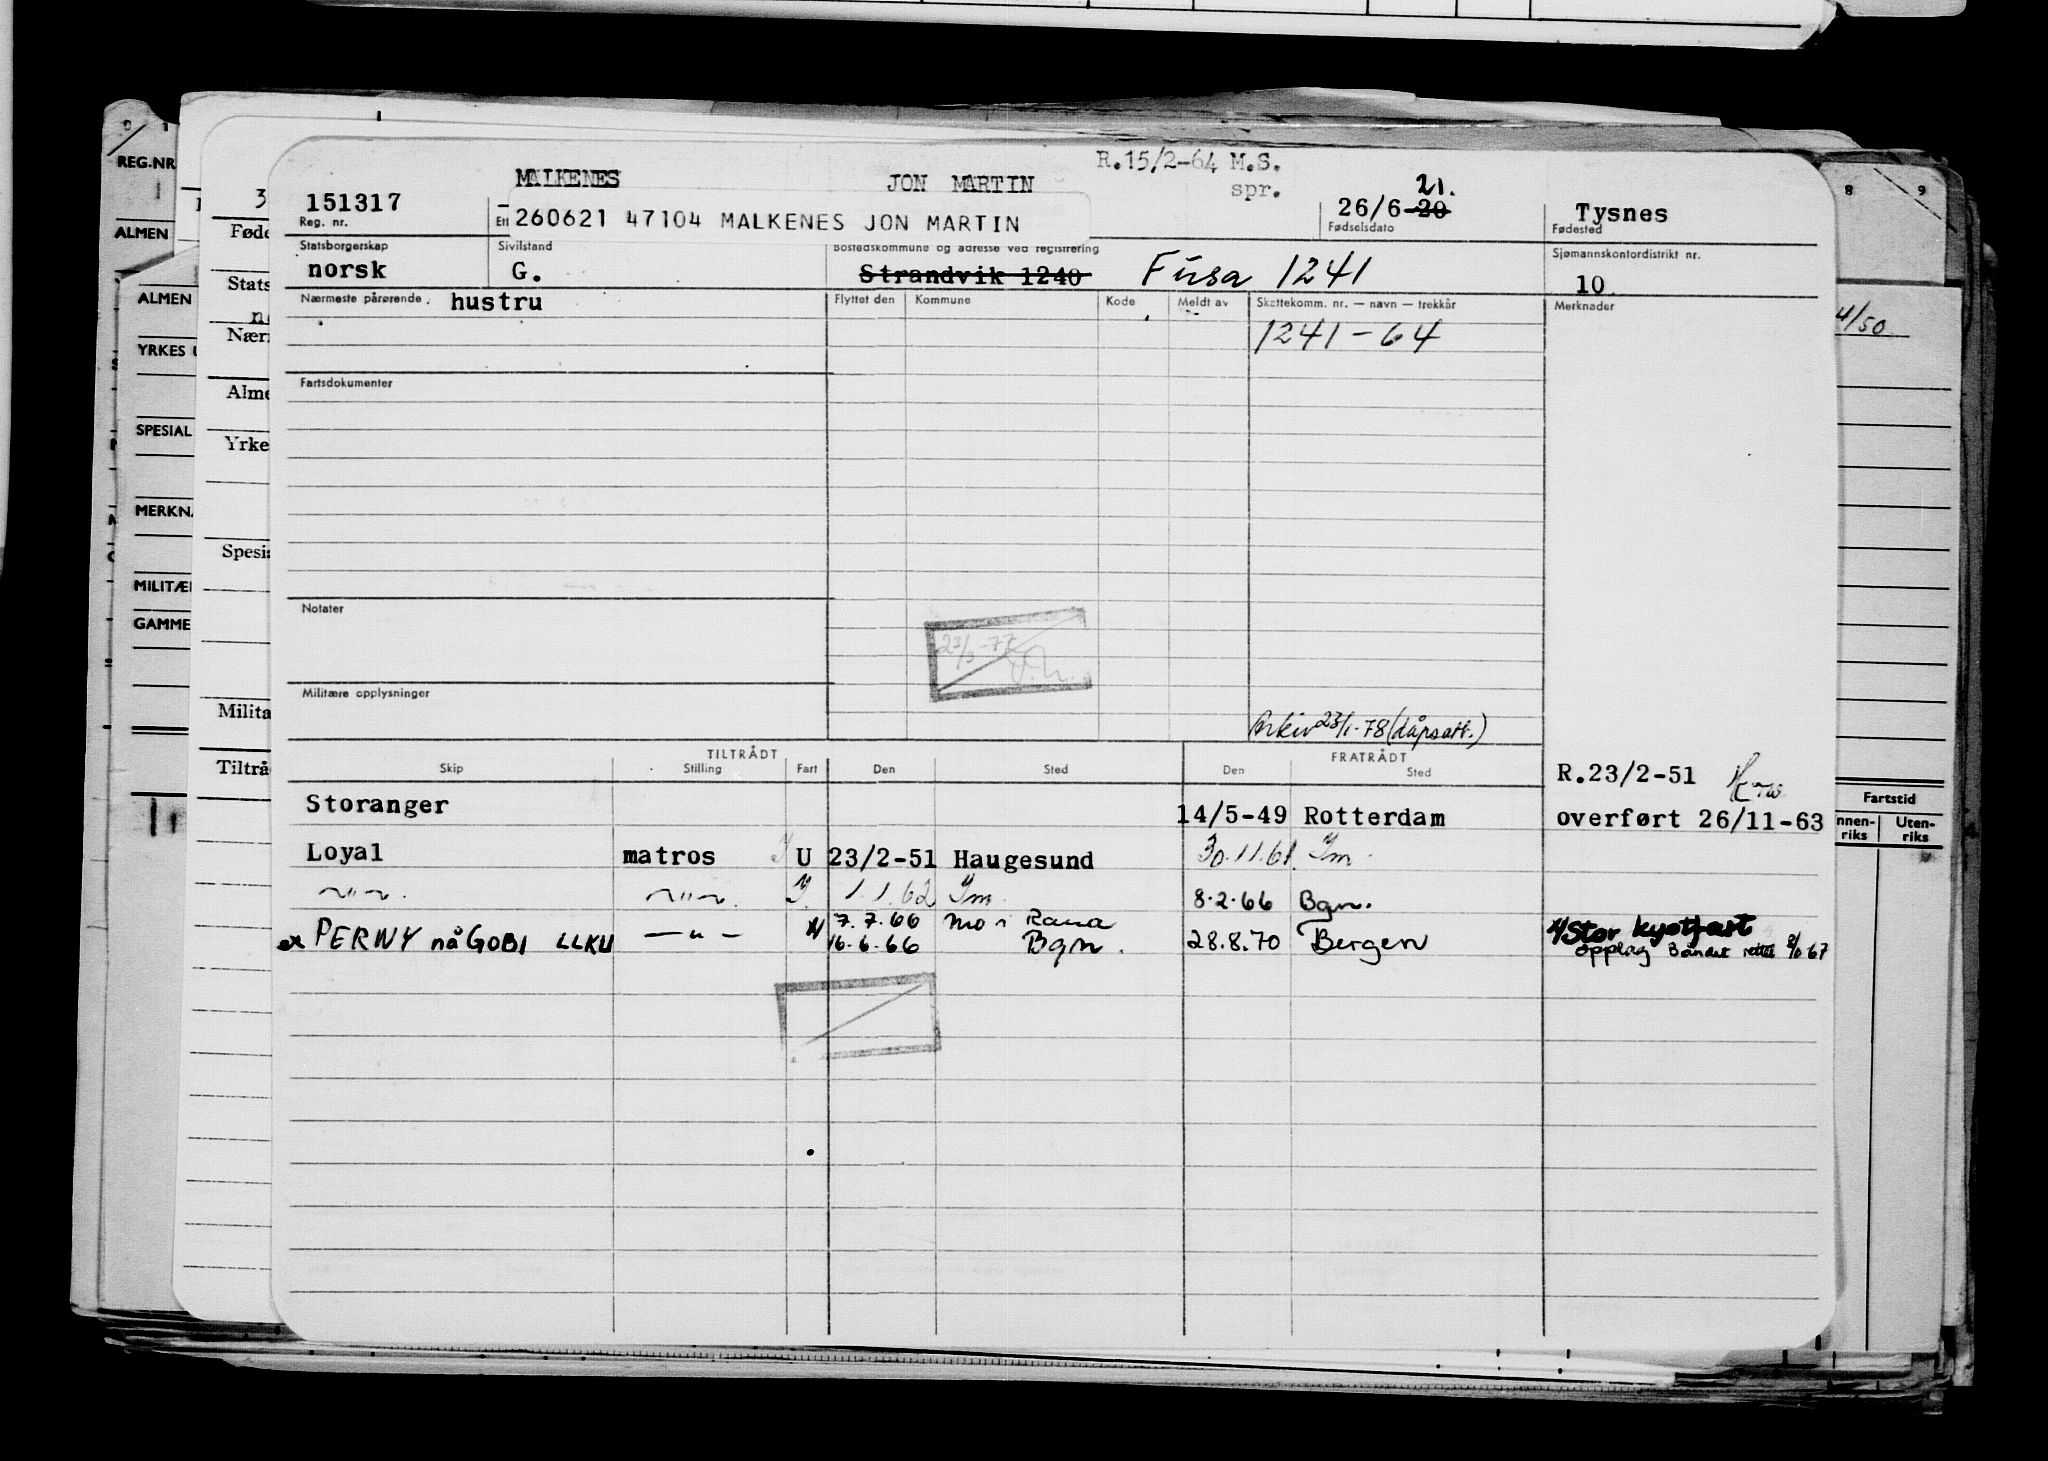 R.15/2-64 M.S.
spr.
MALKENES JON MARTIN
151317
Reg. nr.
260621 47104 MALKENES JON MARTIN
21.
26/6-20
Fødselsdato
Tysnes
Fødested
Statsborgerskap
norsk
Sivilstand
G.
Bostedskommune og adresse ved registrering
Strandvik 1240 Fusa 1241
Sjømannskontordistrikt nr.
10
Nærmeste pårørende hustru
Flyttet den Kommune Kode Meldt av Skattekomm. nr. — navn — trekkår Merknader
1241-64
Fartsdokumenter
Notater
23/3-77
Militære opplysninger
Arkiv 23/1-78 (dåpsatt.)
TILTRÅDT FRATRÅDT
Skip Stilling Fart Den Sted Den Sted
R.23/2-51
Storanger 14/5-49 Rotterdam overført 26/11-63
Loyal matros U 23/2-51 Haugesund 30.11.61 Im
—"— —"— 1.1.62 Im 8.2.66 Bgn.
7.7.66 Mo i Rana
ex PERNY nå GOBI LLKU —"— 16.6.66 Bgn. 28.8.70 Bergen
Stor kystfart
opplag
REG.NR
ALMEN
ALMEN
YRKES
SPESIAL
MERKNA
MILITÆ
GAMME
Føde
Stats
Nærr
Alme
Yrke
Spesia
Milita
Tiltråd
8 9
4/50
Fartstid
nnen-
riks
Uten-
riks